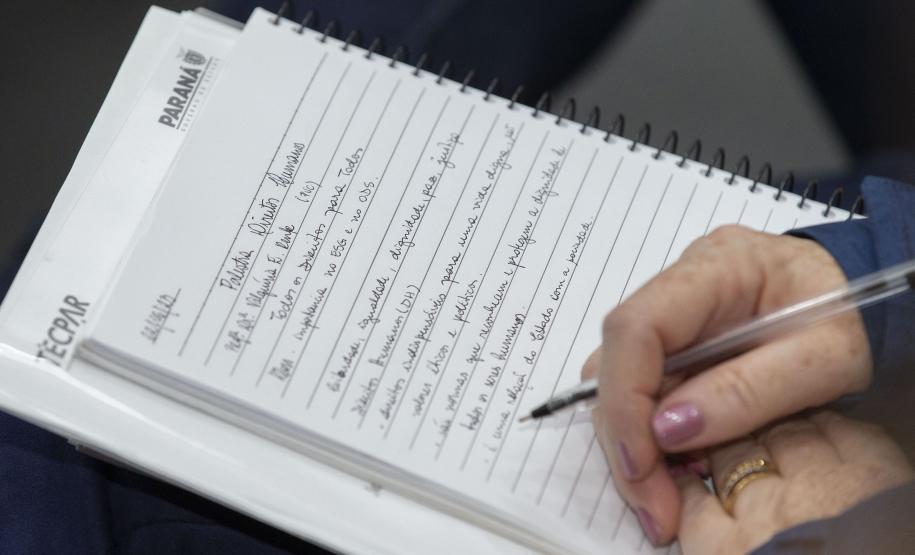 PARANÁ
GOVERNO DO ESTADO
TECPAR
Palestra Direitos Humanos
Valquiria E. Renk (PUC)
Todos os Direitos para Todos
importância no ESG e no ODS.
igualdade, dignidade, paz, justiça
Direitos Humanos (DH)
. direitos indispensáveis para uma vida digna,
valores éticos e políticos.
. são normas que reconhecem e protegem a dignidade de
todos os seres humanos.
. é uma relação do Estado com a sociedade.